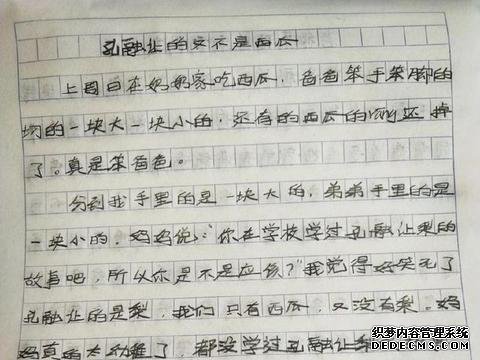 孔融让的又不是西瓜
上周日在奶奶家吃西瓜，爸爸笨手笨脚的
切的一块大一块小的，还有的西瓜的rang还掉
了。真是笨爸爸。
分到我手里的是一块大的，弟弟手里的是
一块小的，妈妈说："你在学校学过孔融让梨的
故事吧，所以你是不是应该？"我觉得好笑死了
孔融让的是梨，我们只有西瓜，又没有梨。妈
妈真的太幼稚了，都没学过孔融让梨
本文内容管理系统
www.dedecms.com